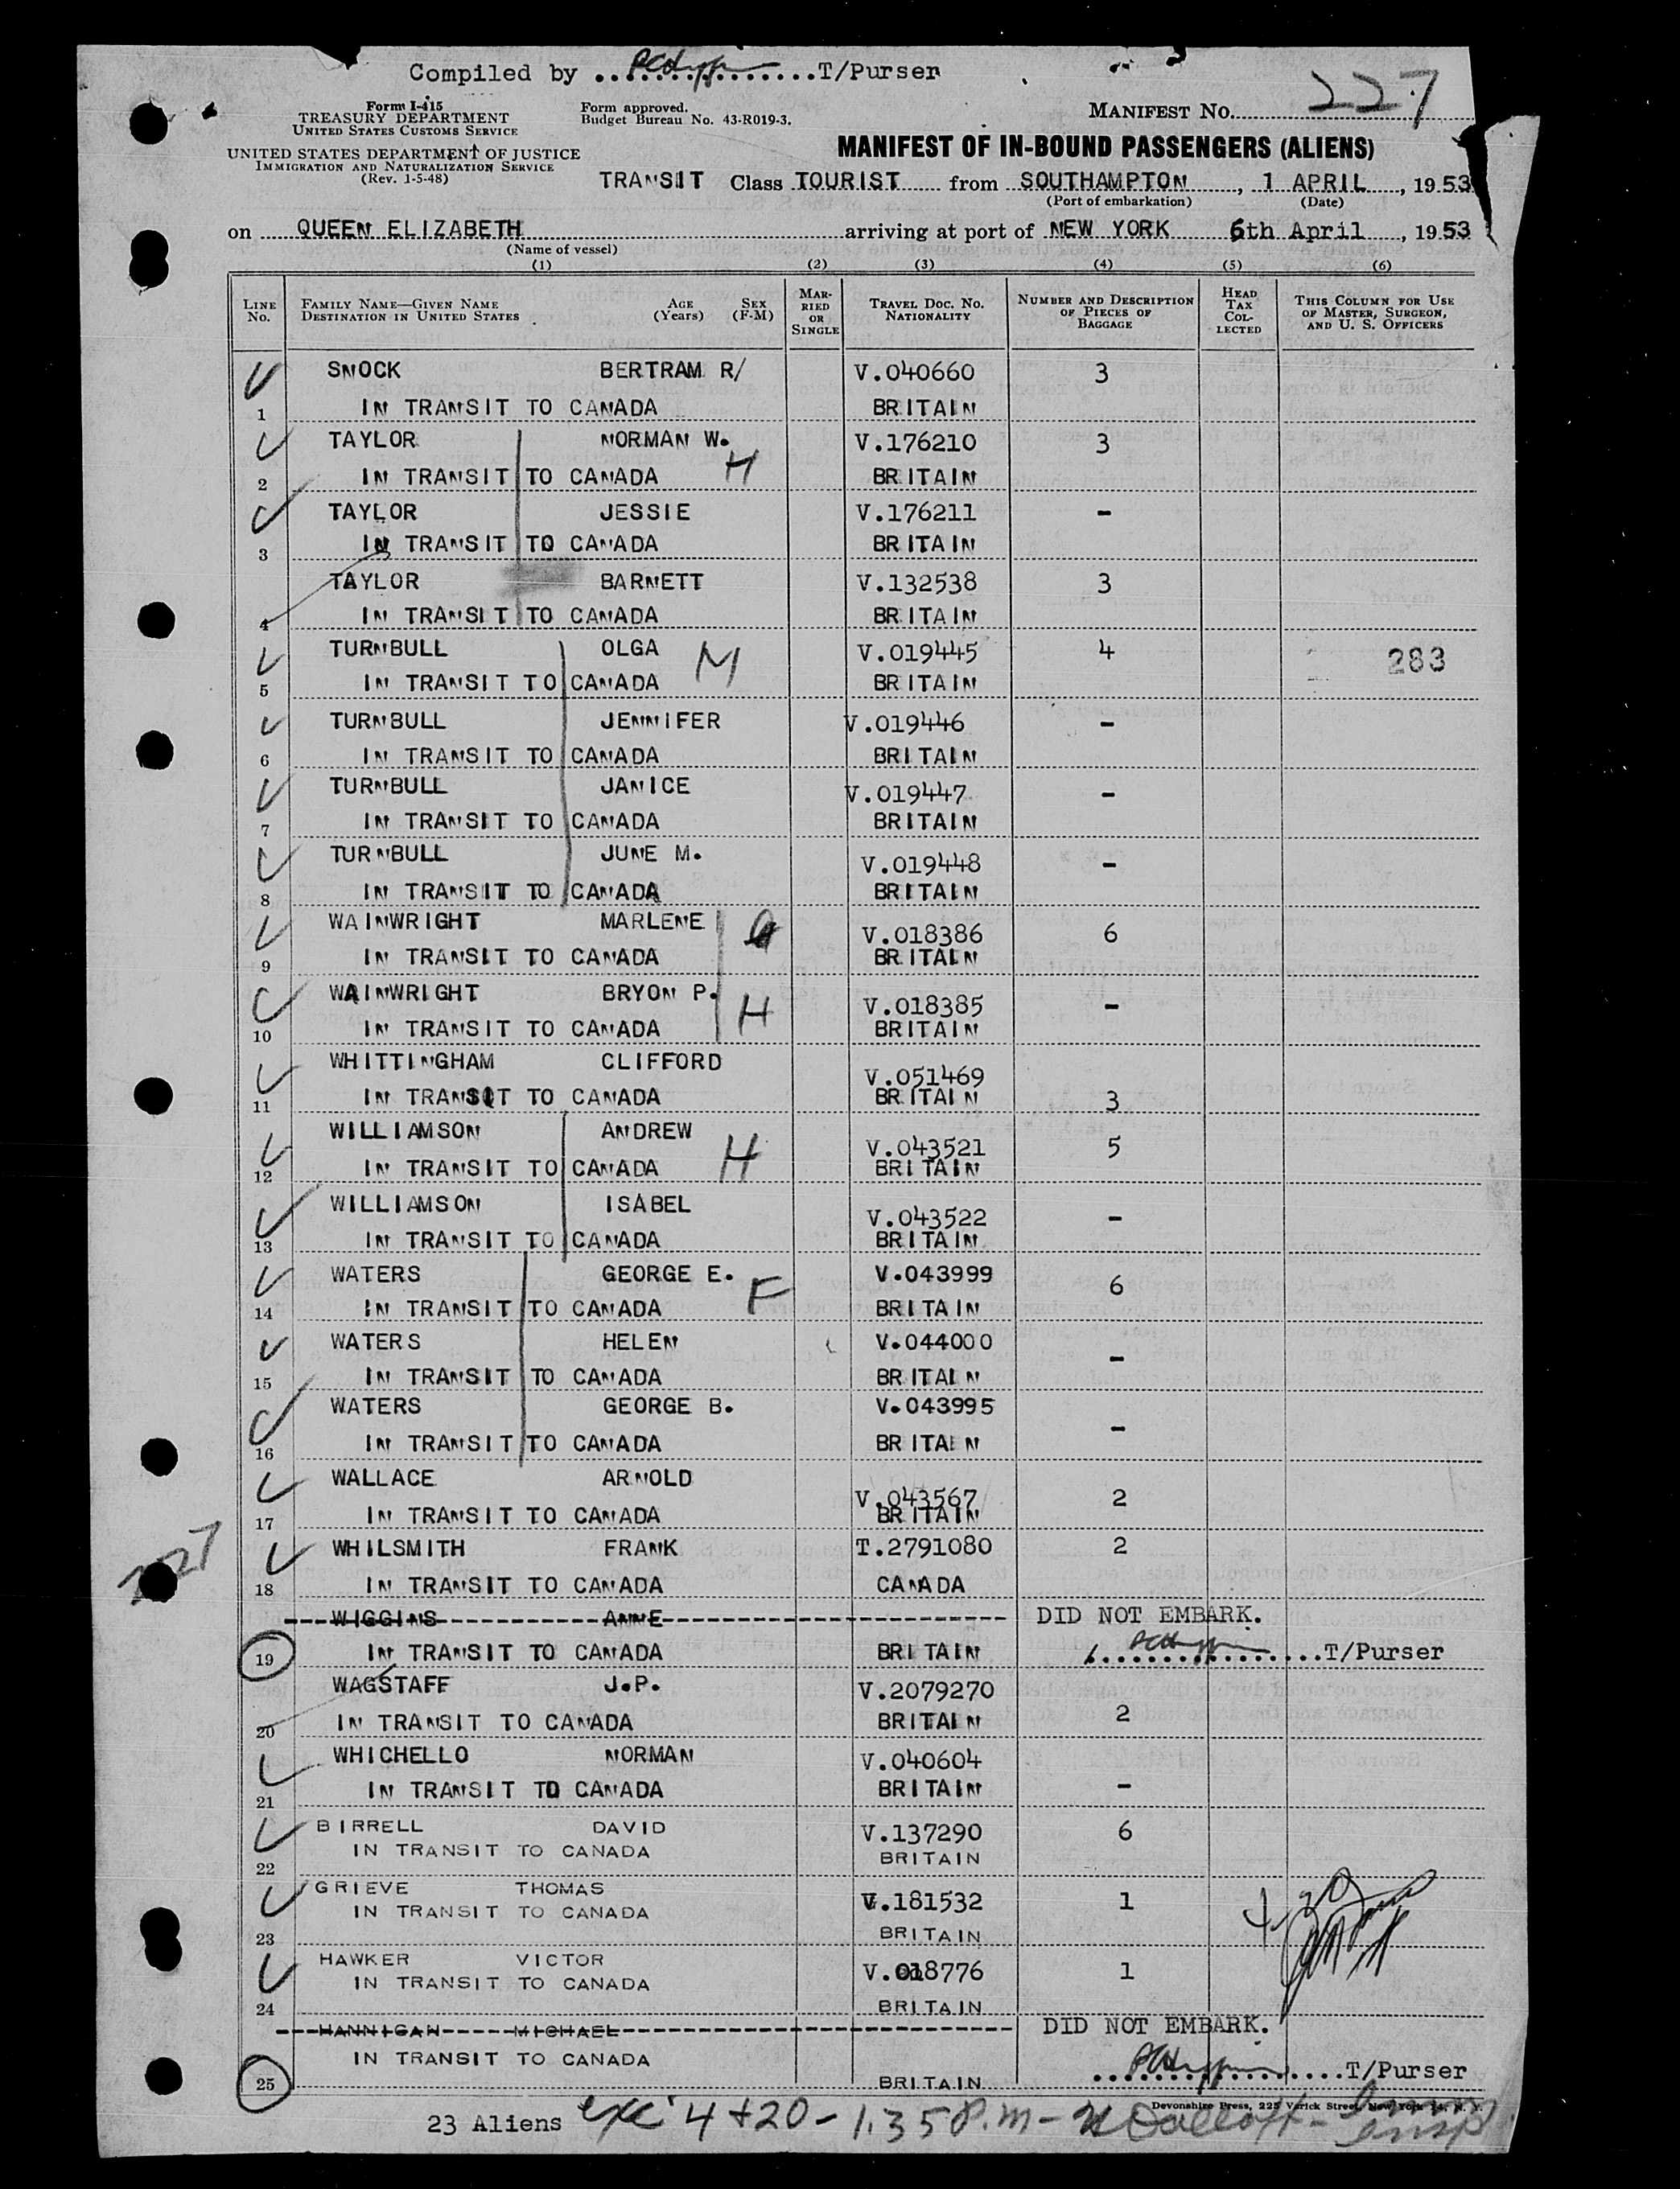 Compiled by ..................T/Purser
Form I-415
TREASURY DEPARTMENT
UNITED STATES CUSTOMS SERVICE
Form approved.
Budget Bureau No. 43-R019-3.
MANIFEST No. 227
UNITED STATES DEPARTMENT OF JUSTICE
IMMIGRATION AND NATURALIZATION SERVICE
(Rev. 1-5-48)
MANIFEST OF IN-BOUND PASSENGERS (ALIENS)
TRANSIT Class TOURIST from SOUTHAMPTON, 1 APRIL, 1953
(Port of embarkation) (Date)
on QUEEN ELIZABETH arriving at port of NEW YORK 6th April, 1953
(Name of vessel)
(1) (2) (3) (4) (5) (6)
LINE No. FAMILY NAME—GIVEN NAME DESTINATION IN UNITED STATES AGE (Years) SEX (F-M) MARRIED OR SINGLE TRAVEL DOC. NO. NATIONALITY NUMBER AND DESCRIPTION OF PIECES OF BAGGAGE HEAD TAX COLLECTED THIS COLUMN FOR USE OF MASTER, SURGEON, AND U. S. OFFICERS
SNOCK BERTRAM R/ V.040660 3
1 IN TRANSIT TO CANADA BRITAIN
TAYLOR NORMAN W. H V.176210 3
2 IN TRANSIT TO CANADA BRITAIN
TAYLOR JESSIE V.176211 -
3 IN TRANSIT TO CANADA BRITAIN
TAYLOR BARNETT V.132538 3
4 IN TRANSIT TO CANADA BRITAIN
TURNBULL OLGA M V.019445 4 283
5 IN TRANSIT TO CANADA BRITAIN
TURNBULL JENNIFER V.019446 -
6 IN TRANSIT TO CANADA BRITAIN
TURNBULL JANICE V.019447 -
7 IN TRANSIT TO CANADA BRITAIN
TURNBULL JUNE M. V.019448 -
8 IN TRANSIT TO CANADA BRITAIN
WAINWRIGHT MARLENE V.018386 6
9 IN TRANSIT TO CANADA BRITAIN
WAINWRIGHT BRYON P. H V.018385 -
10 IN TRANSIT TO CANADA BRITAIN
WHITTINGHAM CLIFFORD V.051469
11 IN TRANSIT TO CANADA BRITAIN 3
WILLIAMSON ANDREW H V.043521 5
12 IN TRANSIT TO CANADA BRITAIN
WILLIAMSON ISABEL V.043522 -
13 IN TRANSIT TO CANADA BRITAIN
WATERS GEORGE E. F V.043999 6
14 IN TRANSIT TO CANADA BRITAIN
WATERS HELEN V.044000 -
15 IN TRANSIT TO CANADA BRITAIN
WATERS GEORGE B. V.043995 -
16 IN TRANSIT TO CANADA BRITAIN
WALLACE ARNOLD V.043567 2
17 IN TRANSIT TO CANADA BRITAIN
227
WHILSMITH FRANK T.2791080 2
18 IN TRANSIT TO CANADA CANADA
WIGGINS ANNE DID NOT EMBARK.
19 IN TRANSIT TO CANADA BRITAIN ..................T/Purser
WAGSTAFF J.P. V.2079270
20 IN TRANSIT TO CANADA BRITAIN 2
WHICHELLO NORMAN V.040604
21 IN TRANSIT TO CANADA BRITAIN -
BIRRELL DAVID V.137290 6
22 IN TRANSIT TO CANADA BRITAIN
GRIEVE THOMAS V.181532 1
23 IN TRANSIT TO CANADA BRITAIN
HAWKER VICTOR V.018776 1
24 IN TRANSIT TO CANADA BRITAIN
HANNIGAN MICHAEL DID NOT EMBARK.
25 IN TRANSIT TO CANADA BRITAIN ..................T/Purser
Devonshire Press, 225 Varick Street, New York 14, N. Y.
23 Aliens exc 4 + 20 - 1.35 P.m -